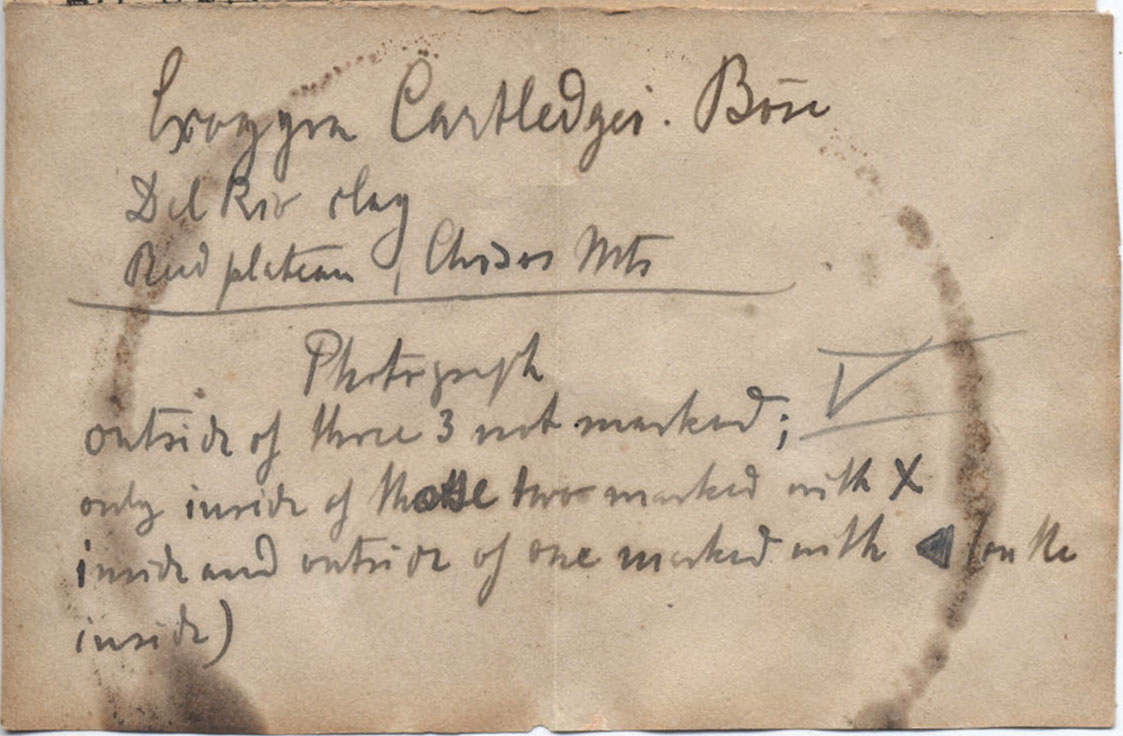 Exogyra Cartledgei. Böse
Del Rio clay
Reed plateau, Chisos Mts
Photograph
outside of three 3 not marked;
only inside of those two marked with X
inside and outside of one marked with ◀ (on the
inside)